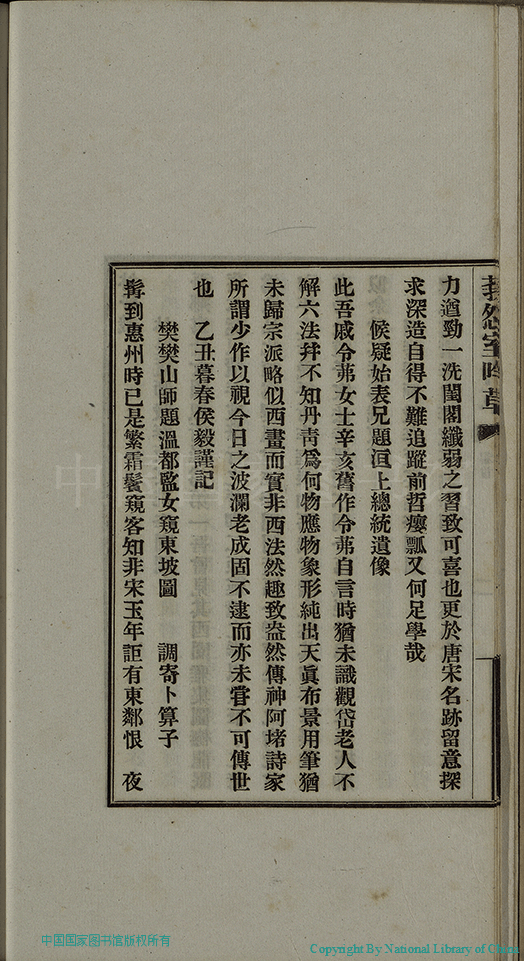 力遒勁一洗閨閣纖弱之習致可喜也更於唐宋名跡留意探
求深造自得不難追蹤前哲癭瓢又何足學哉
候疑始表兄題洹上總統遺像
此吾戚令茀女士辛亥舊作令茀自言時猶未識觀岱老人不
解六法幷不知丹靑爲何物應物象形純出天眞布景用筆猶
未歸宗派略似西畫而實非西法然趣致盎然傳神阿堵詩家
所謂少作以視今日之波瀾老成固不逮而亦未嘗不可傳世
也　乙丑暮春侯毅謹記
樊樊山師題溫都監女窺東坡圖　調寄卜算子
髯到惠州時已是繁霜鬢窺客知非宋玉年詎有東鄰恨　夜
中国国家图书馆版权所有
Copyright By National Library of China